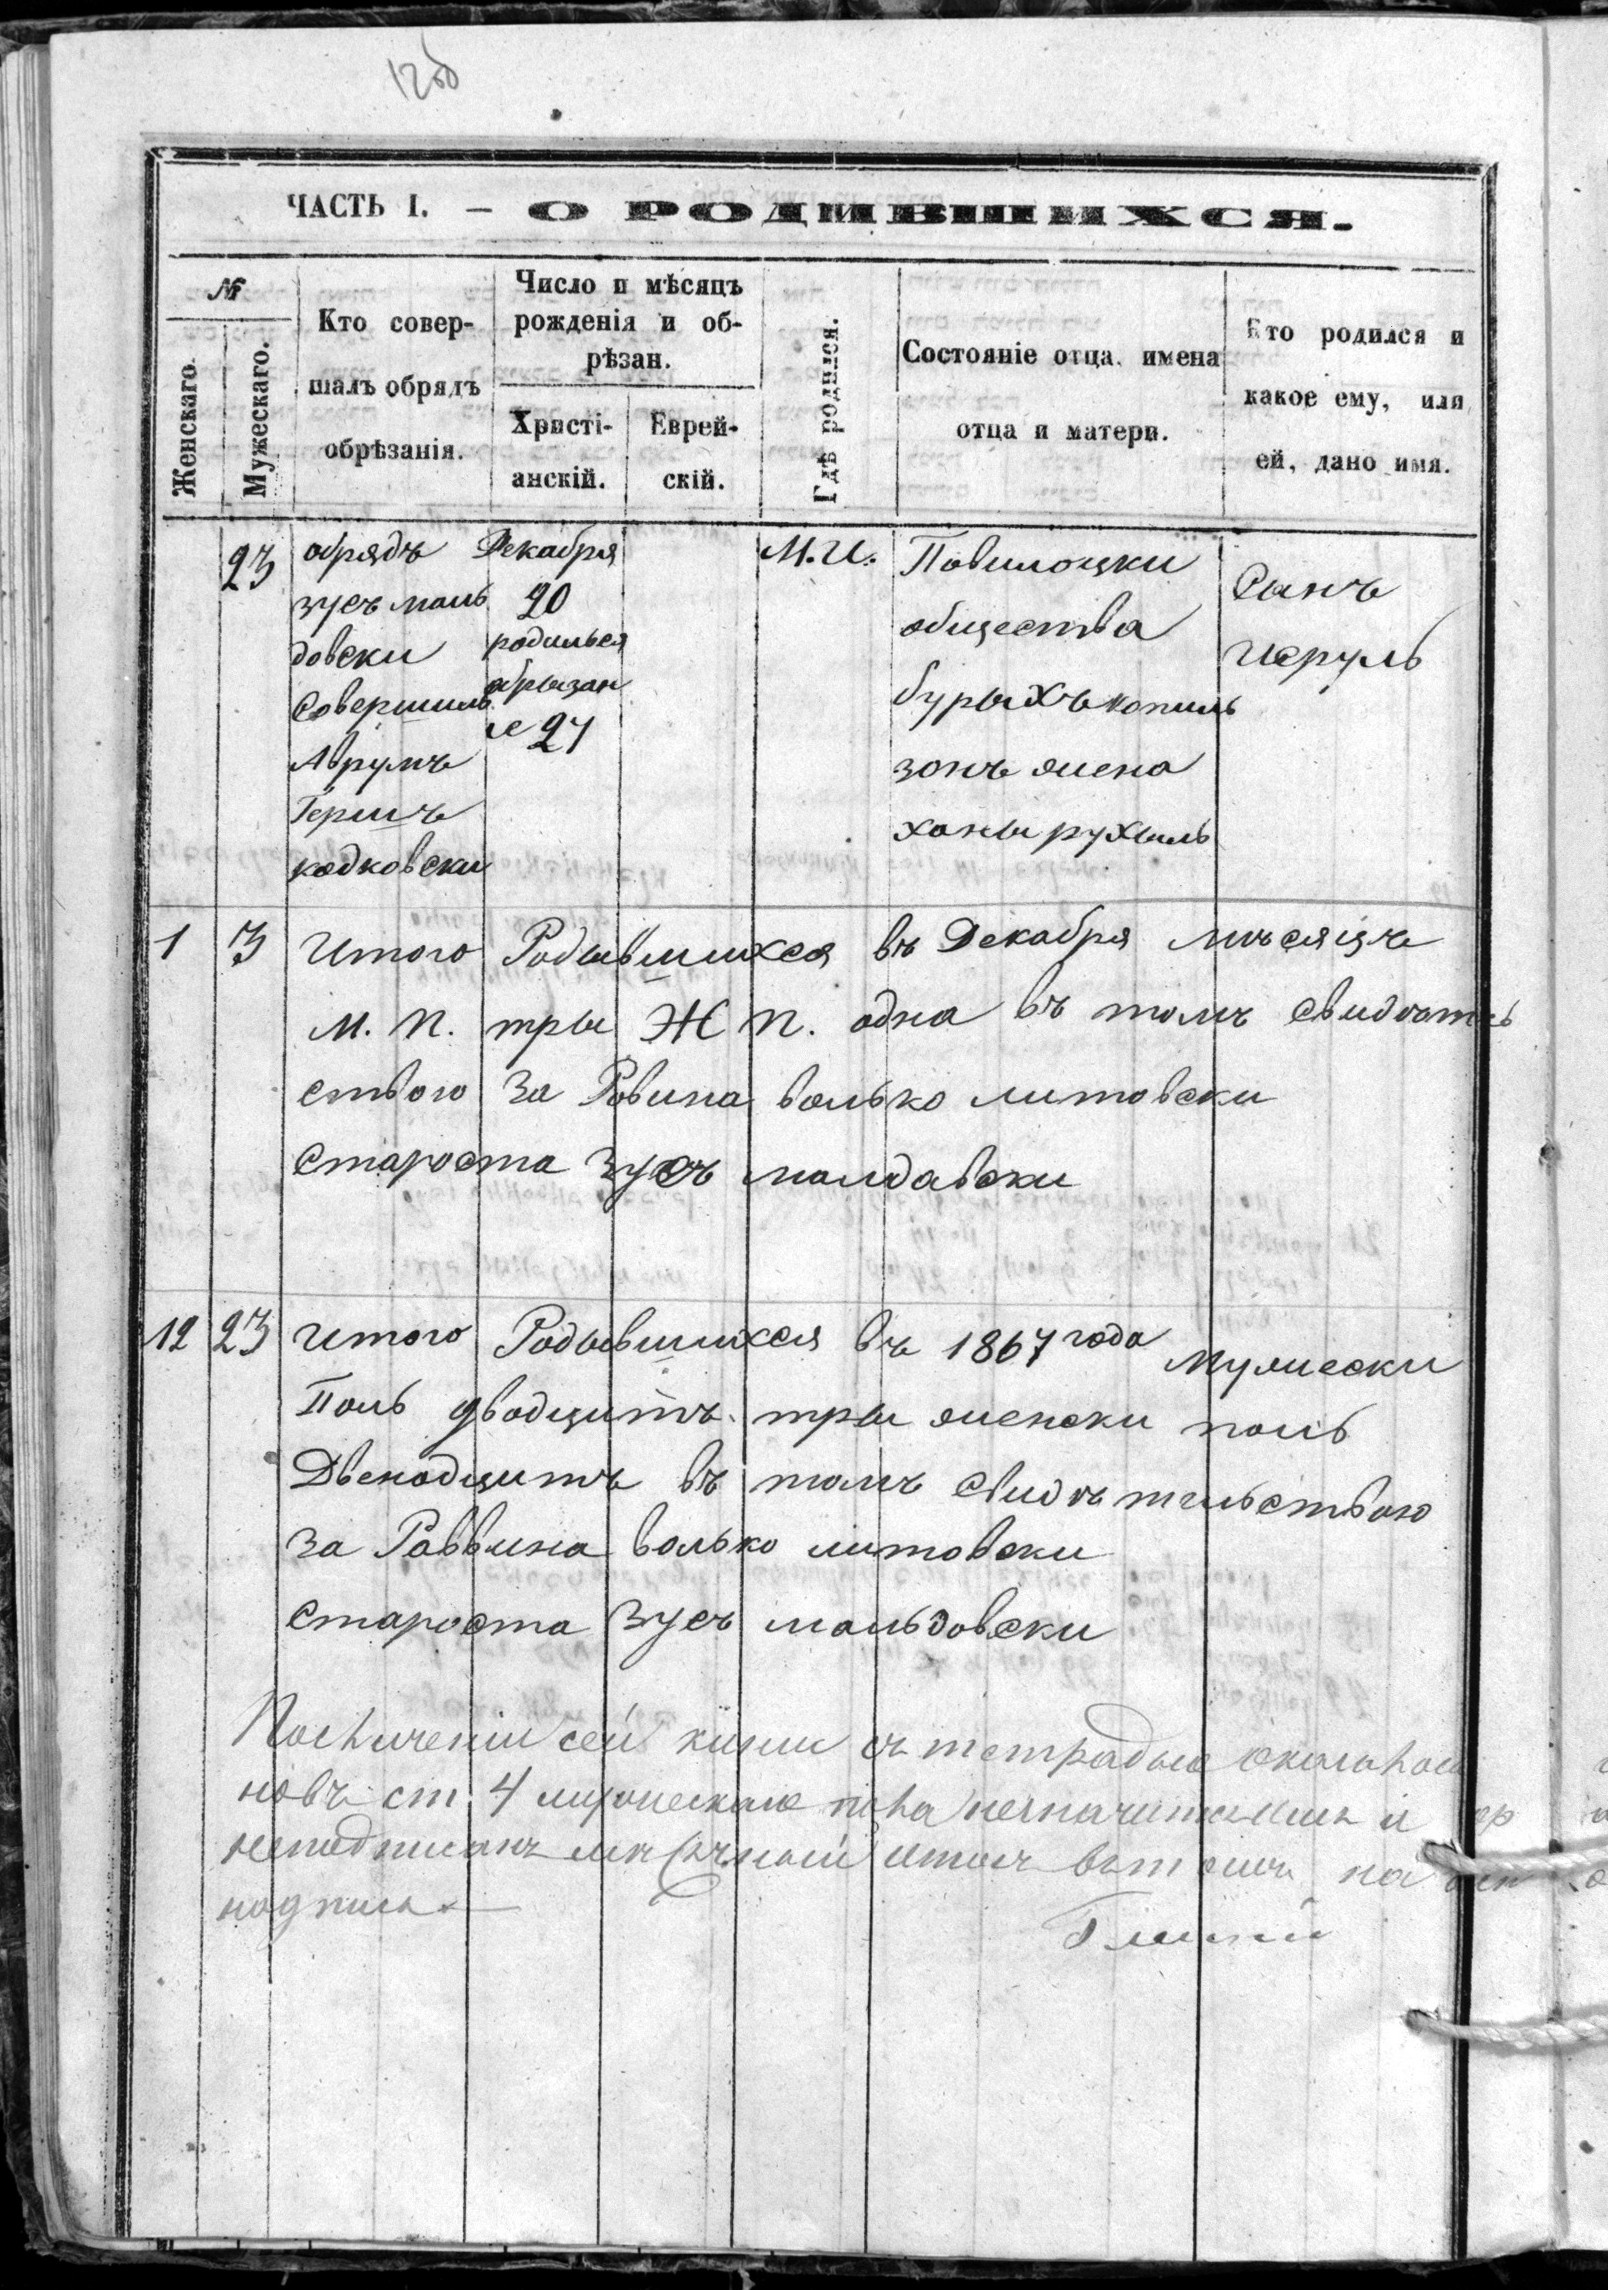 12об
ЧАСТЬ I. — О РОДИВШИХСЯ.
№
Женскаго.
Мужескаго.
Кто совер-
шалъ обрядъ
обрѣзанія.
Число и мѣсяцъ
рожденія и об-
рѣзан.
Христі-
анскій.
Еврей-
скій.
Гдѣ родился.
Состояніе отца, имена
отца и матери.
Кто родился и
какое ему, или
ей, дано имя.
23
обрядъ
зусъ моль
довски
Совершиль
Аврумъ
Гершъ
кодковски
Декабря
20
родилься
обрызан
е 27
М.И.
Повилоцки
общества
бурыхъ копиль
зонъ жена
ханы рухыль
Сынъ
Исруль
1 3 Итого Родывшихся въ Декабря мъсяцъ
М. П. тры Ж П. одна въ томъ свидътель
ствого За Ровина волько литовски
Староста Зусъ молдавски
12 23 Итого Родывшихся въ 1867 года Мужески
Поль двадцить тры женски поль
Двенодцить въ томъ свидътельствою
За Раввина волько литовски
Староста Зусъ мольдовски
сей книги съ тетрадью
ст. 4 мужескаго пола и
неподписанъ итогъ въ томъ на
надпись